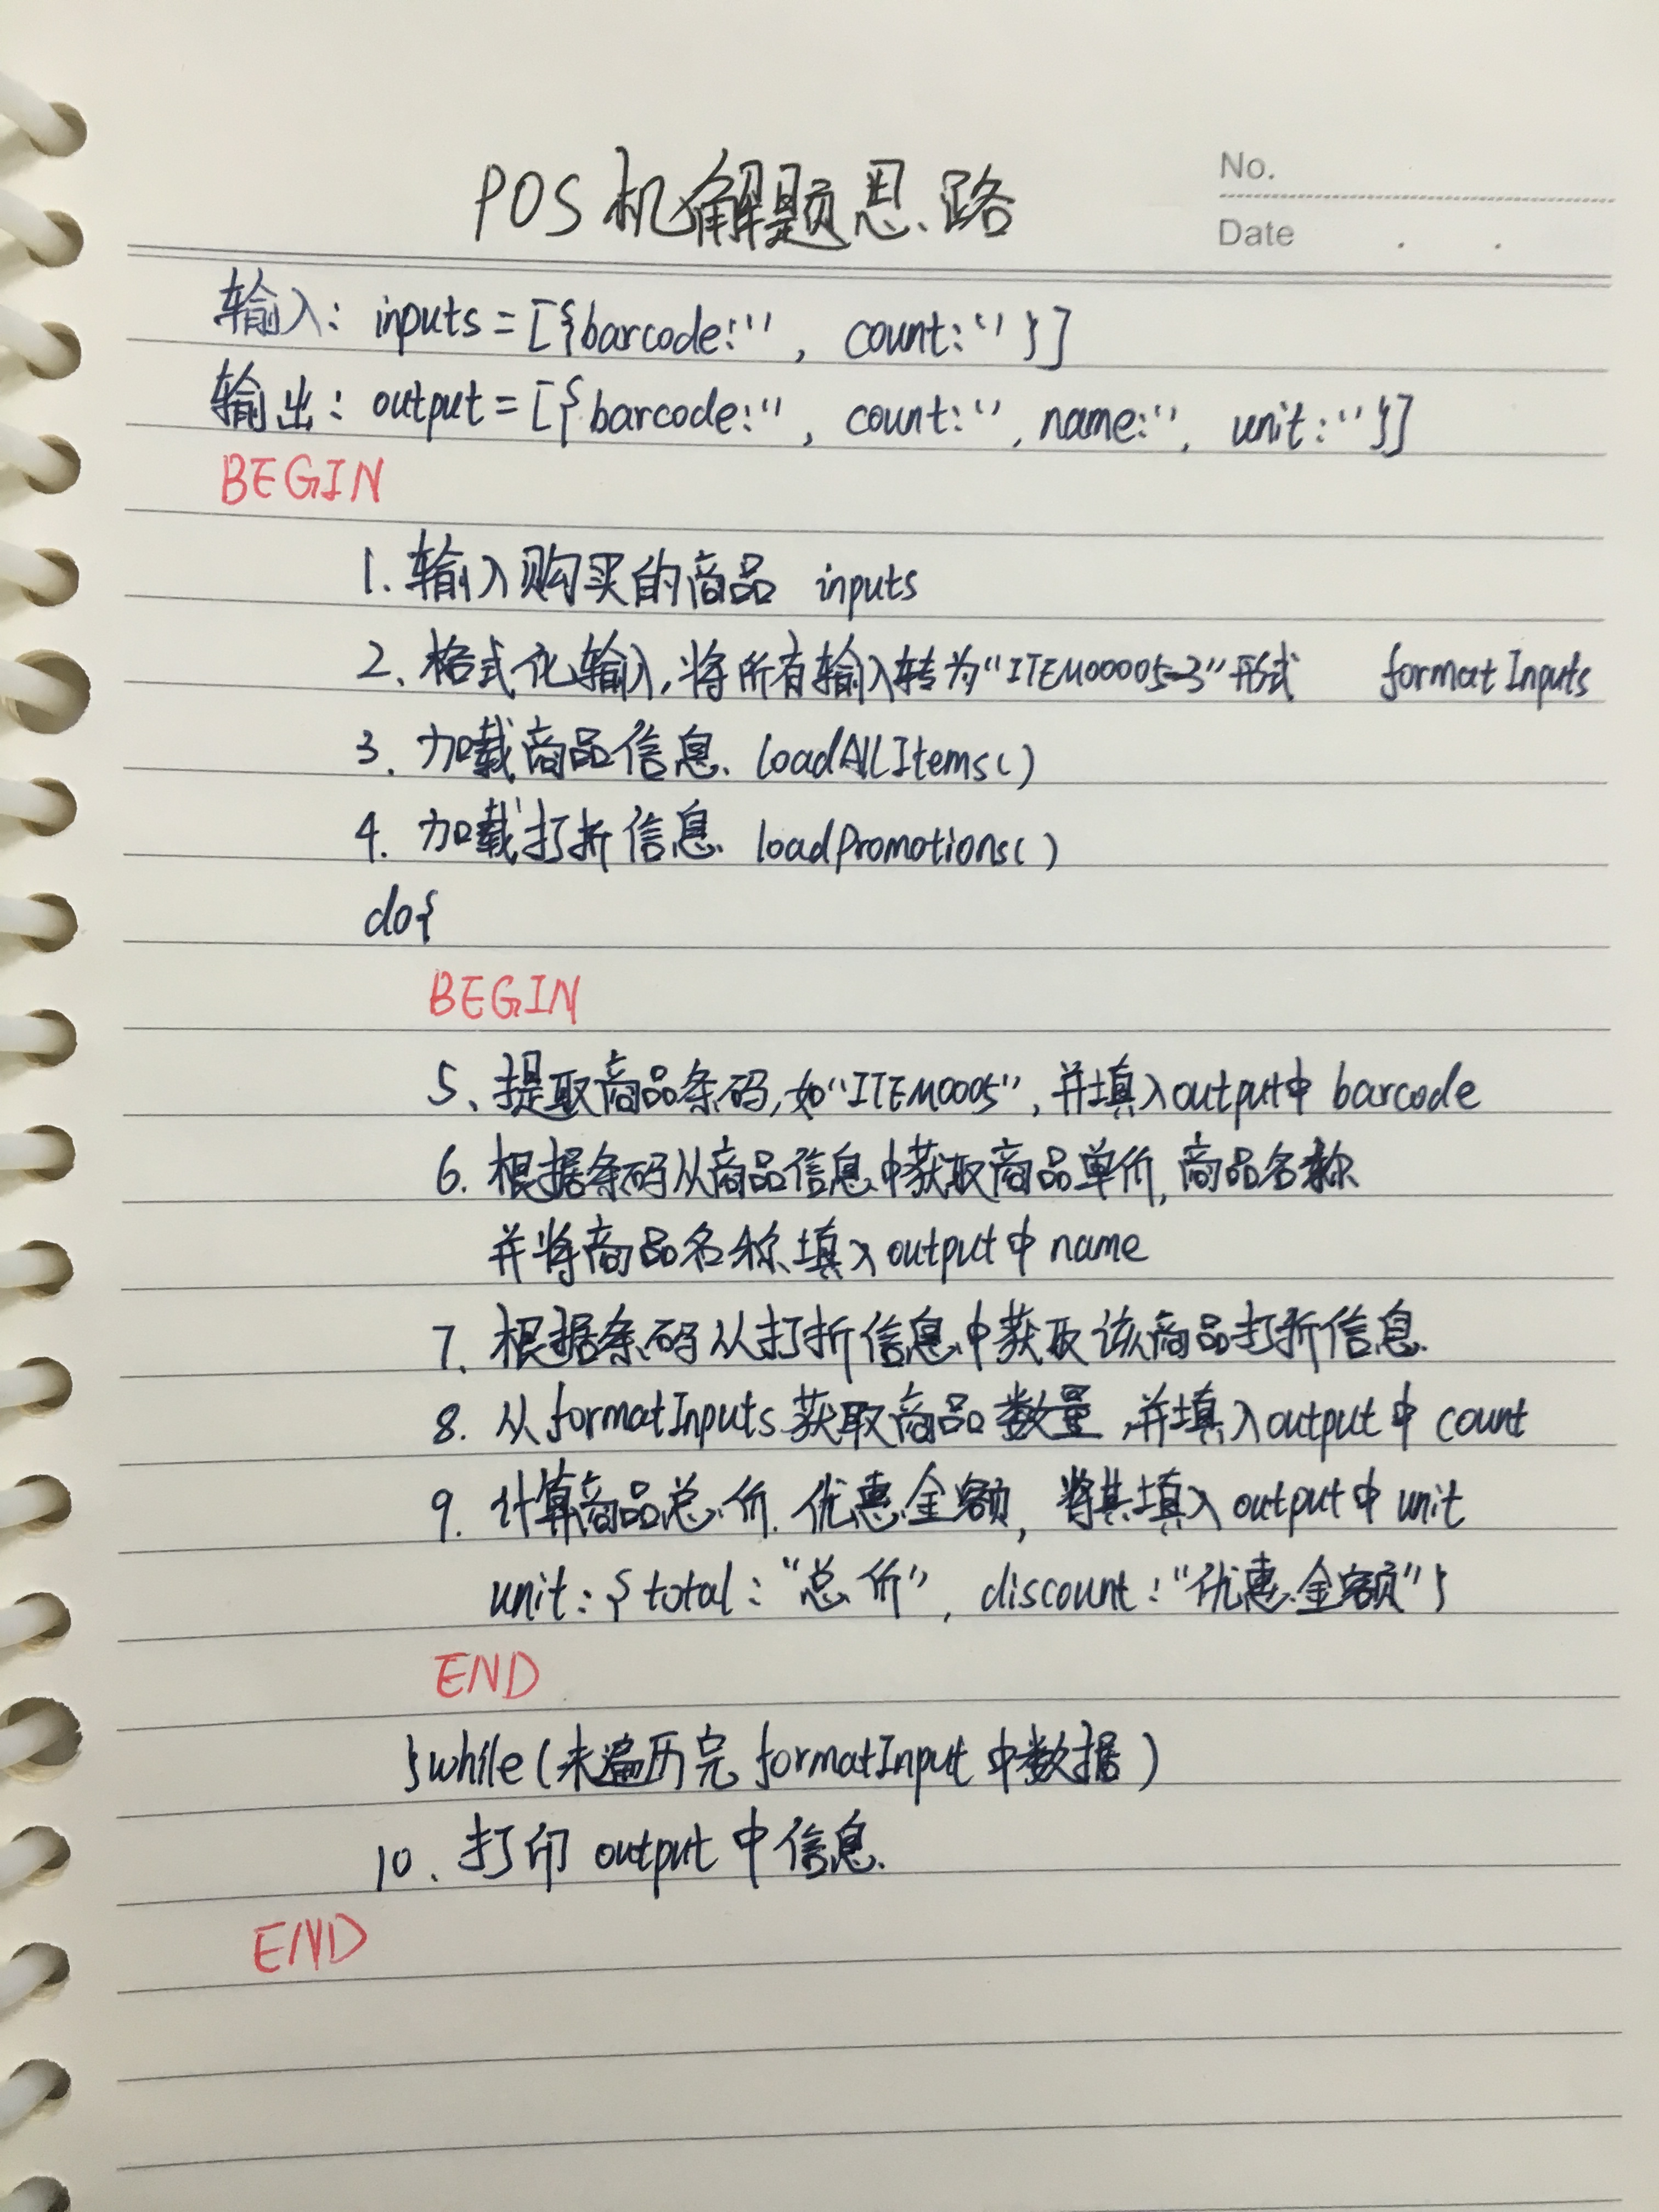 POS机解题思路
No.
Date . .
输入: inputs = [{barcode:'', count:''}]
输出: output = [{barcode:'', count:'', name:'', unit:''}]
BEGIN
1. 输入购买的商品 inputs
2、格式化输入,将所有输入转为"ITEM00005-3"形式 formatInputs
3. 加载商品信息. loadAllItems()
4. 加载打折信息. loadPromotions()
do{
BEGIN
5、提取商品条码,如"ITEM0005",并填入output中 barcode
6. 根据条码从商品信息中获取商品单价,商品名称
并将商品名称填入output中 name
7、根据条码从打折信息中获取该商品打折信息.
8. 从formatInputs获取商品数量,并填入output中 count
9. 计算商品总价.优惠金额,将其填入output中 unit
unit:{total:"总价", discount:"优惠金额"}
END
}while(未遍历完 formatInput 中数据)
10、打印 output 中信息.
END